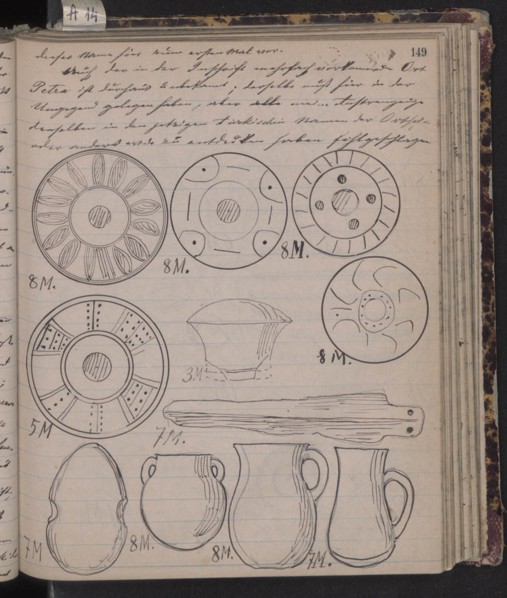 A 14
149
dieser Name hier zum ersten Mal vor.
Auch der in der Inschrift mehrfach vorkommende Ort
Petra ist durchaus unbekannt; derselbe muß hier in der
Umgegend gelegen haben, aber alle Anstrengungen
denselben in den jetzigen türkischen Namen der
oder anders zu entdecken haben fehlgeschlagen
8M.
8M.
8M.
8M.
3M
5M
7M.
7M
8M.
8M.
7M.